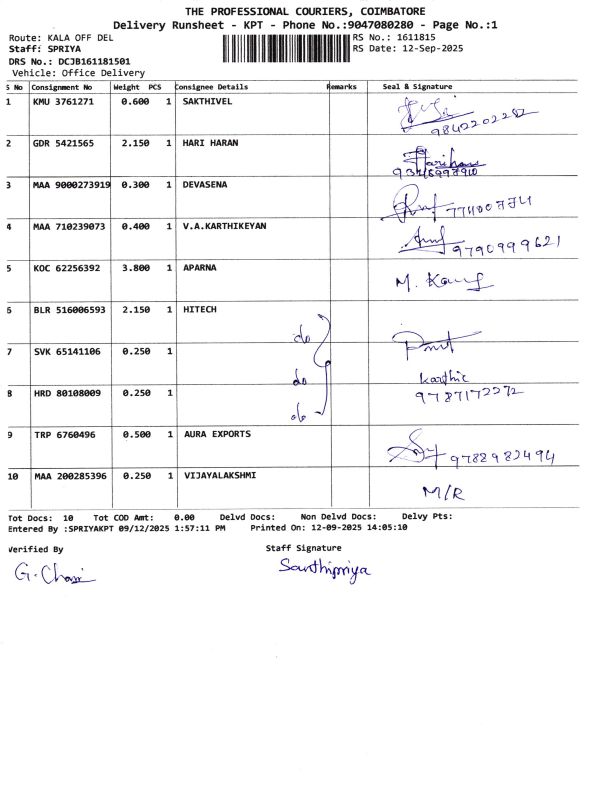 THE PROFESSIONAL COURIERS, COIMBATORE
Delivery Runsheet - KPT - Phone No.:9047080280 - Page No.:1
Route: KALA OFF DEL RS No.: 1611815
Staff: SPRIYA RS Date: 12-Sep-2025
DRS No.: DCJB161181501
Vehicle: Office Delivery
S No Consignment No Weight PCS Consignee Details Remarks Seal & Signature
1 KMU 3761271 0.600 1 SAKTHIVEL
9842202252
2 GDR 5421565 2.150 1 HARI HARAN Hariharan
3 MAA 9000273919 0.300 1 DEVASENA
4 MAA 710239073 0.400 1 V.A.KARTHIKEYAN
9790999621
5 KOC 62256392 3.800 1 APARNA
6 BLR 516006593 2.150 1 HITECH
do
7 SVK 65141106 0.250 1
do karthic
8 HRD 80108009 0.250 1 9787172272
do
9 TRP 6760496 0.500 1 AURA EXPORTS
9782982494
10 MAA 200285396 0.250 1 VIJAYALAKSHMI
M/R
Tot Docs: 10 Tot COD Amt: 0.00 Delvd Docs: Non Delvd Docs: Delvy Pts:
Entered By :SPRIYAKPT 09/12/2025 1:57:11 PM Printed On: 12-09-2025 14:05:10
Verified By Staff Signature
Santhipriya